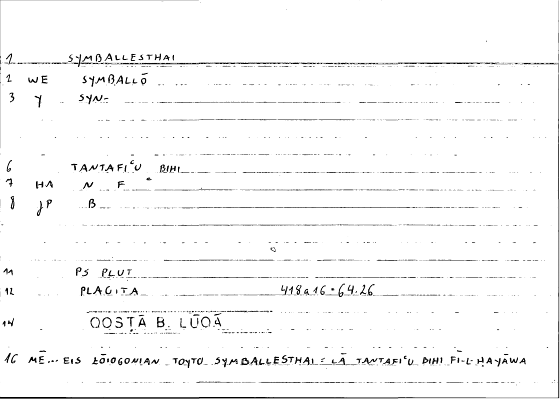 1 SYMBALLESTHAI
2 WE SYMBALLŌ
3 Y SYN-
6 TANTAFIᶜU BIHI
7 HA N F ᶜ
8 JP B
11 PS PLUT
12 PLACITA 418a16 • 64.26
14 QOSṬĀ B. LŪQĀ
16 MĒ... EIS ZŌIOGONIAN TOYTO SYMBALLESTHAI = LĀ TANTAFIᶜU BIHI FĪ-L-ḤAYĀWA